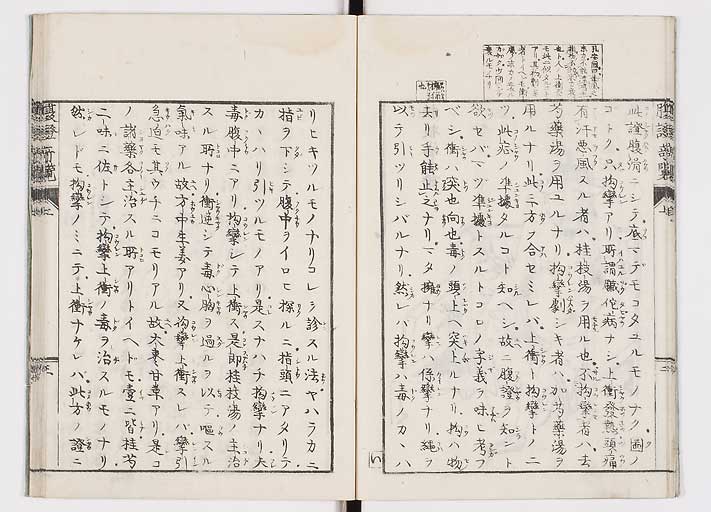 此證腹滑ニシテ底マデモコタユルモノナク圖ノ
コトク只拘攣アリ所謂臟佗病ナシ上衝發熱頭痛
有汗悪風スル者ハ桂枝湯ヲ用ル也不拘攣者ハ去
芍藥湯ヲ用ユルナリ拘攣劇シキ者ハ加芍藥湯ヲ
用ルナリ此三方ヲ合セミレバ上衝拘攣トノ二
ツ此症準據タルコト知ヘシ故ニ腹證ヲ知ント
欲セバマヅ準據トスルトコロノ字義ヲ味ヒ考フ
ベシ衝ハ突也向也毒ノ頭上ヘ突上ルナリ拘ハ物
去リ手能止之ナリマタ擁ナリ攣ハ係攣ナリ繩ヲ
以テ引ツリシバルナリ然レバ拘攣ハ毒ノカヽハ
リヒキツルモノナリコレヲ診スル法ヤハラカニ
指ヲ下シテ腹中ヲイロヒ探ルニ指頭ニアタリテ
カヽハリ引ツルモノアリ是スナハチ拘攣ナリ夫
毒腹中ニアリ拘攣シテ上衝ス是即桂枝湯ノ主治
スル所ナリ衝逆シテ毒心胸ヲ過ルヲ以テ嘔スル
氣味アル故方中生姜アリ又拘攣上衝スレバ攣引
急迫モ其ウチニコモリアル故大棗甘草アリ是コ
ノ諸藥各主治スル所アリトイヘトモ壹ニ皆桂芍
二味ニ佐トシテ拘攣上衝ノ毒ヲ治スルモノナリ
然レドモ拘攣ノミニテ上衝ナケレバ此方ノ證ニ